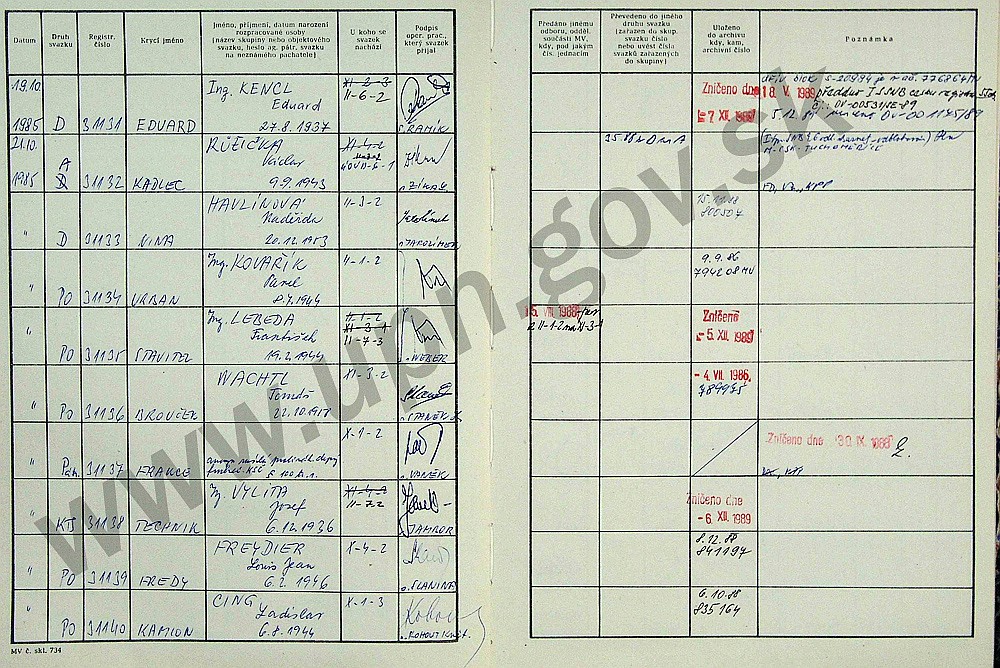 Datum
Druh svazku
Registr. číslo
Krycí jméno
Jméno, příjmení, datum narození
rozpracované osoby
(název skupiny nebo objektového
svazku, heslo ag. pátr. svazku
na neznámého pachatele)
U koho se
svazek
nachází
Podpis
oper. prac.,
který svazek
přijal
Předáno jinému
odboru, odděl.
součásti MV,
kdy, pod jakým
čís. jednacím
Převedeno do jiného
druhu svazku
(zařazen do skup.
svazku číslo
nebo uvést čísla
svazků zařazených
do skupiny)
Uloženo
do archivu
kdy, kam,
archivní číslo
Poznámka
19.10. Ing. KENCL XI-2-3
Eduard II-6-2
1985 D 31131 EDUARD 27.8.1937 ŠRAMÍK
Zničeno dne 18. V. 1989
- 7 XII. 1989
21.10. RŮŽIČKA XI-4-2
A Václav
1985 D 31132 KADLEC 9.9.1943 ZIKA
HAVLÍNOVÁ II-3-2
Naděžda
" D 31133 NINA 20.12.1953
15.11.88
800507
Ing. KOVAŘÍK II-1-2
Pavel
" PO 31134 URBAN 8.7.1944
9.9.86
794208 MV
Ing. LEBEDA II-1-2
František XI-3-1
II-7-3
" PO 31135 STAVITEL 19.2.1944 WEBER
5. VII. 1988
z II-1-2 na XI-3-1
Zničeno
- 5. XII. 1989
WACHTL XI-3-2
Tomáš
" PO 31136 BROUČEK 22.10.1958 STANĚK
- 4. VII. 1986
789975
X-1-2
" Pán. 31137 FRANCE VANĚK
Zničeno dne 30. IX. 1988
Ing. VYLITA XI-4-2
Josef II-7-2
" KTS 31138 TECHNIK 6.12.1936 JAMBOR
Zničeno dne
- 6. XII. 1989
FREYDIER X-4-2
Louis Jean
" PO 31139 FREDY 6.2.1946 SLANINA
8.12.88
841197
CING X-1-3
Ladislav
" PO 31140 KAMION 6.8.1944
6.10.88
835164
MV č. skl. 734
www.upn.gov.sk